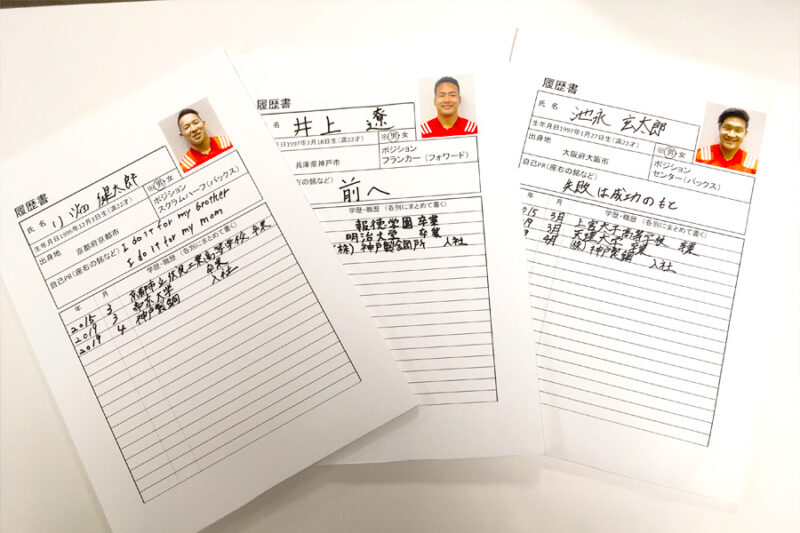 履歴書
氏名 小畑 健太郎
生年月日1996年12月3日生(満22才)
※男・女
出身地
京都府京都市
ポジション
スクラムハーフ(バックス)
自己PR(座右の銘など)
I do it for my brother
I do it for my mom
年 月 学歴・職歴(各別にまとめて書く)
2015 3 京都市立伏見工業高等学校 卒業
2019 3 帝京大学 卒業
2019 4 神戸製鋼 入社
履歴書
名 井上 遼
月日1997年3月18日生(満22才)
※男・女
兵庫県神戸市
ポジション
フランカー(フォワード)
の銘など)
前へ
学歴・職歴(各別にまとめて書く)
報徳学園 卒業
明治大学 卒業
(株)神戸製鋼所 入社
履歴書
氏名 池永 玄太郎
生年月日1997年1月27日生(満22才)
※男・女
出身地
大阪府大阪市
ポジション
センター(バックス)
自己PR(座右の銘など)
失敗は成功のもと
学歴・職歴(各別にまとめて書く)
015 3月 上宮太子高等学校 卒業
9 3月 天理大学 卒業
9 4月 (株)神戸製鋼 入社